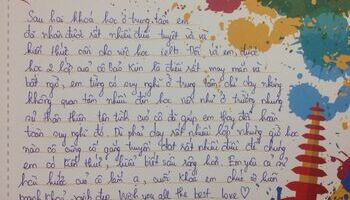 Sau hai khoá học ở trung tâm em
đã nhận được rất nhiều điều tuyệt vời và
kiến thức cần cho việc học ielts. Đối với em, được
học 2 lớp của cô Bảo Kim là điều rất may mắn và
bất ngờ, em từng có suy nghĩ ở trung tâm chỉ dạy nhưng
không quan tâm nhiều đến học nói như ở trường nhưng
sự thân thiện tận tình của cô đã giúp em thay đổi hoàn
toàn suy nghĩ đó. Dù phải dạy rất nhiều lớp nhưng giờ học
nào cô cũng cố gắng truyền đạt rất nhiều điều để chúng
em có kiến thức, hiểu biết sâu rộng hơn. Em yêu cá
hài hước của cô lắm ạ, cuối khoá em chúc cô luôn
mạnh khoẻ, xinh đẹp. Wish you all the best, love ♡